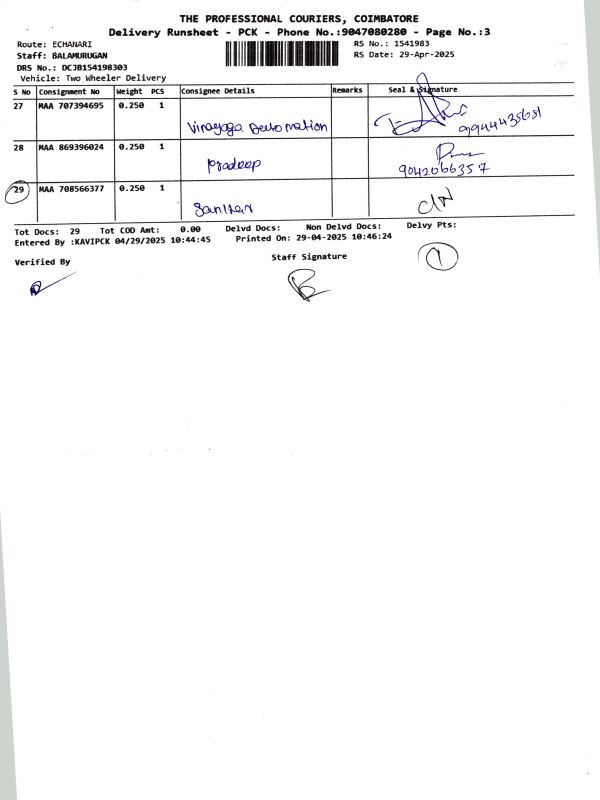 THE PROFESSIONAL COURIERS, COIMBATORE
Delivery Runsheet - PCK - Phone No.:9047080280 - Page No.:3
Route: ECHANARI RS No.: 1541983
Staff: BALAMURUGAN RS Date: 29-Apr-2025
DRS No.: DCJB154198303
Vehicle: Two Wheeler Delivery
S No Consignment No Weight PCS Consignee Details Remarks Seal & Signature
27 MAA 707394695 0.250 1
Vinayaga Automation 9944435651
28 MAA 869396024 0.250 1
Pradeep 9042066357
29 MAA 708566377 0.250 1
Tot Docs: 29 Tot COD Amt: 0.00 Delvd Docs: Non Delvd Docs: Delvy Pts:
Entered By :KAVIPCK 04/29/2025 10:44:45 Printed On: 29-04-2025 10:46:24
Verified By Staff Signature 1